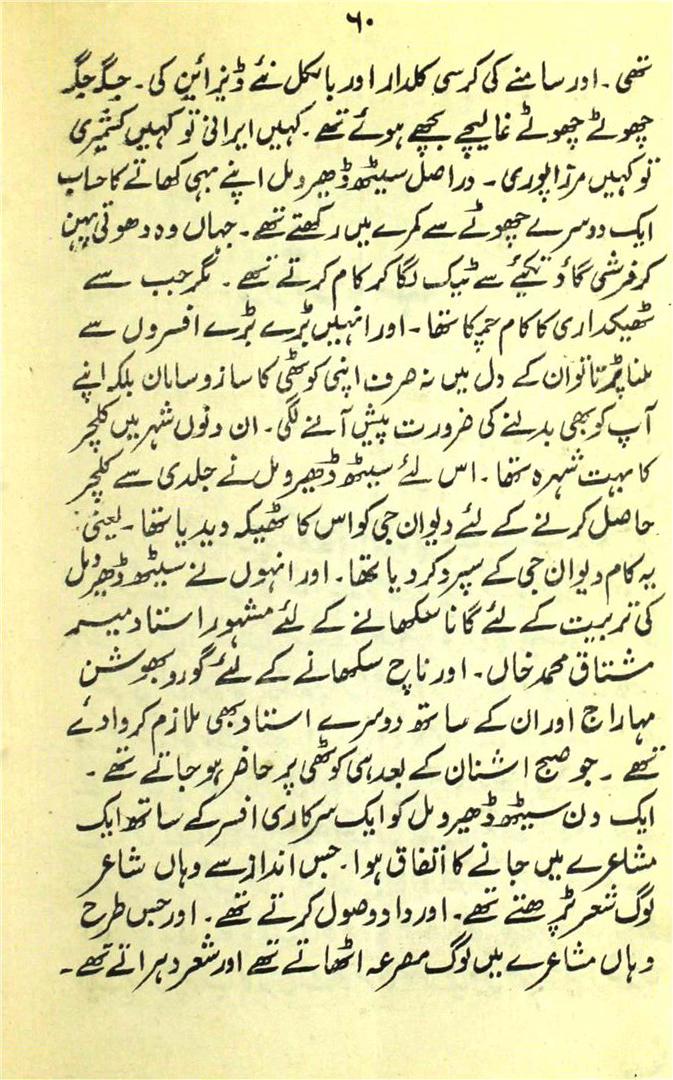 ۶۰
تھی۔ اور سامنے کی کرسی کلدار اور بالکل نئے ڈیزائین کی۔ جگہ جگہ
چھوٹے چھوٹے غالیچے بچھے ہوئے تھے۔ کہیں ایرانی تو کہیں کشمیری
تو کہیں مرزاپوری۔ دراصل سیٹھ ڈھیرومل اپنے بہی کھاتے کا حساب
ایک دوسرے چھوٹے سے کمرے میں رکھتے تھے۔ جہاں وہ دھوتی پہن
کر فرشی گاؤ تکیئے سے ٹیک لگا کر کام کرتے تھے۔ مگر جب سے
ٹھیکداری کا کام چمکا تھا۔ اور انہیں بڑے بڑے افسروں سے
ملنا پڑتا تو ان کے دل میں نہ صرف اپنی کوٹھی کا ساز و سامان بلکہ اپنے
آپ کو بھی بدلنے کی ضرورت پیش آنے لگی۔ ان دنوں شہر میں کلچر
کا بہت شہرہ تھا۔ اس لئے سیٹھ ڈھیرومل نے جلدی سے کلچر
حاصل کرنے کے لئے دیوان جی کو اس کا ٹھیکہ دیدیا تھا۔ یعنی
یہ کام دیوان جی کے سپرد کر دیا تھا۔ اور انہوں نے سیٹھ ڈھیرومل
کی تربیت کے لئے گانا سکھانے کے لئے مشہور استاد میر
مشتاق محمد خاں۔ اور ناچ سکھانے کے لئے گورو بھوشن
مہاراج اور ان کے ساتھ دوسرے استاد بھی ملازم کروا دئے
تھے۔ جو صبح اشنان کے بعد ہی کوٹھی پر حاضر ہو جاتے تھے۔
ایک دن سیٹھ ڈھیرومل کو ایک سرکاری افسر کے ساتھ ایک
مشاعرے میں جانے کا اتفاق ہوا۔ جس انداز سے وہاں شاعر
لوگ شعر پڑھتے تھے۔ اور داد وصول کرتے تھے۔ اور جس طرح
وہاں مشاعرے میں لوگ مصرعہ اٹھاتے تھے اور شعر دہراتے تھے۔